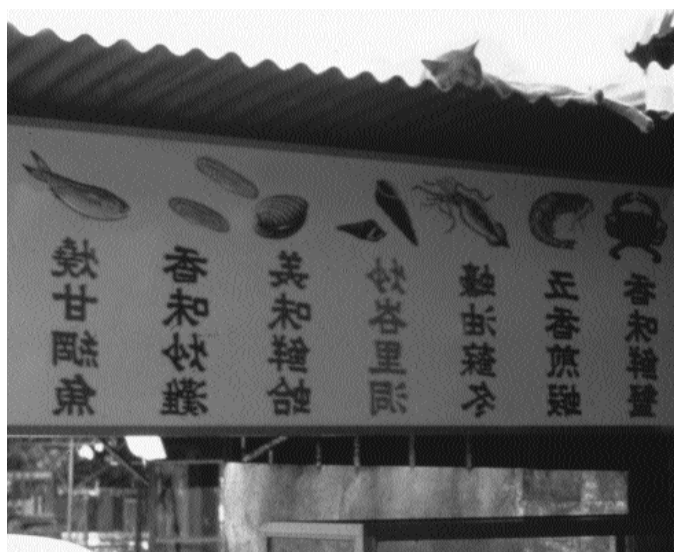 燒甘網魚
香味炒灘
美味鲜蛤
炒峇里洞
蠔油蘇冬
五香煎蝦
香味鲜蟹